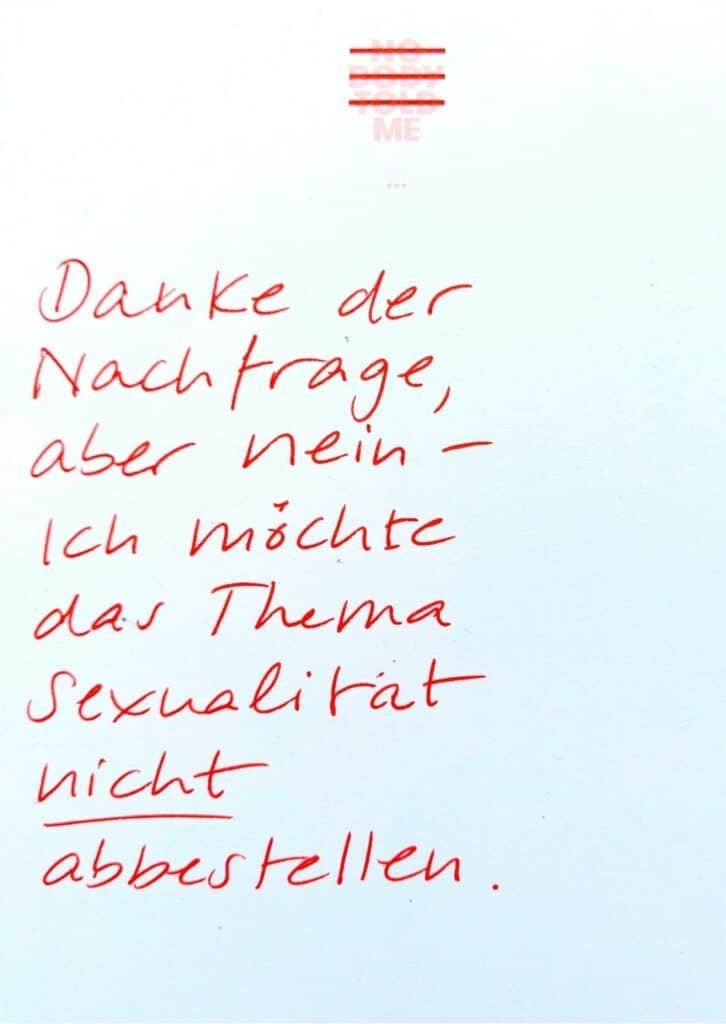 NO
BODY
TOLD
ME
...
Danke der
Nachfrage,
aber nein –
Ich möchte
das Thema
Sexualität
nicht
abbestellen.